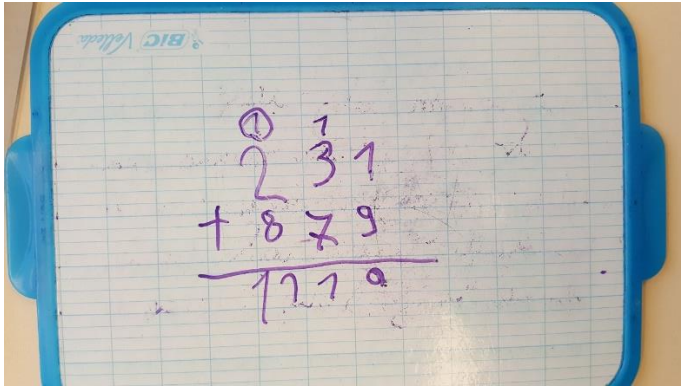 BIC Velleda
1 1
231
+ 879
1110